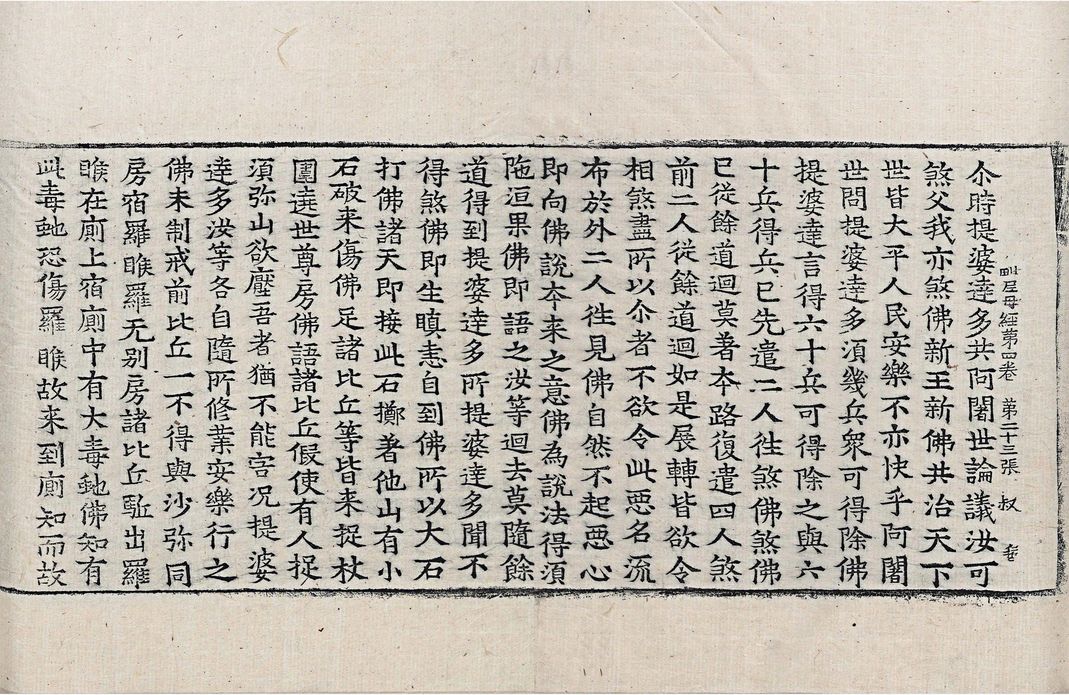 毗尼母經第四卷 第二十三張 叔
尒時提婆達多共阿闍世論議汝可
煞父我亦煞佛新王新佛共治天下
世皆大平人民安樂不亦快乎阿闍
世問提婆達多須幾兵衆可得除佛
提婆達言得六十兵可得除之與六
十兵得兵已先遣二人往煞佛煞佛
已從餘道迴莫著本路復遣四人煞
前二人從餘道迴如是展轉皆欲令
相煞盡所以尒者不欲令此惡名流
布於外二人往見佛自然不起惡心
即向佛說夲来之意佛為說法得須
陁洹果佛即語之汝等迴去莫隨餘
道得到提婆達多所提婆達多聞不
得煞佛即生瞋恚自到佛所以大石
打佛諸天即接此石擲著他山有小
石破来傷佛足諸比丘等皆来捉杖
圍遶世尊房佛語諸比丘假使有人捉
須弥山欲壓吾者猶不能害况提婆
達多汝等各自隨所修業安樂行之
佛未制戒前比丘一不得與沙弥同
房宿羅睺羅无別房諸比丘駈出羅
睺在廁上宿廁中有大毒虵佛知有
此毒虵恐傷羅睺故来到廁知而故